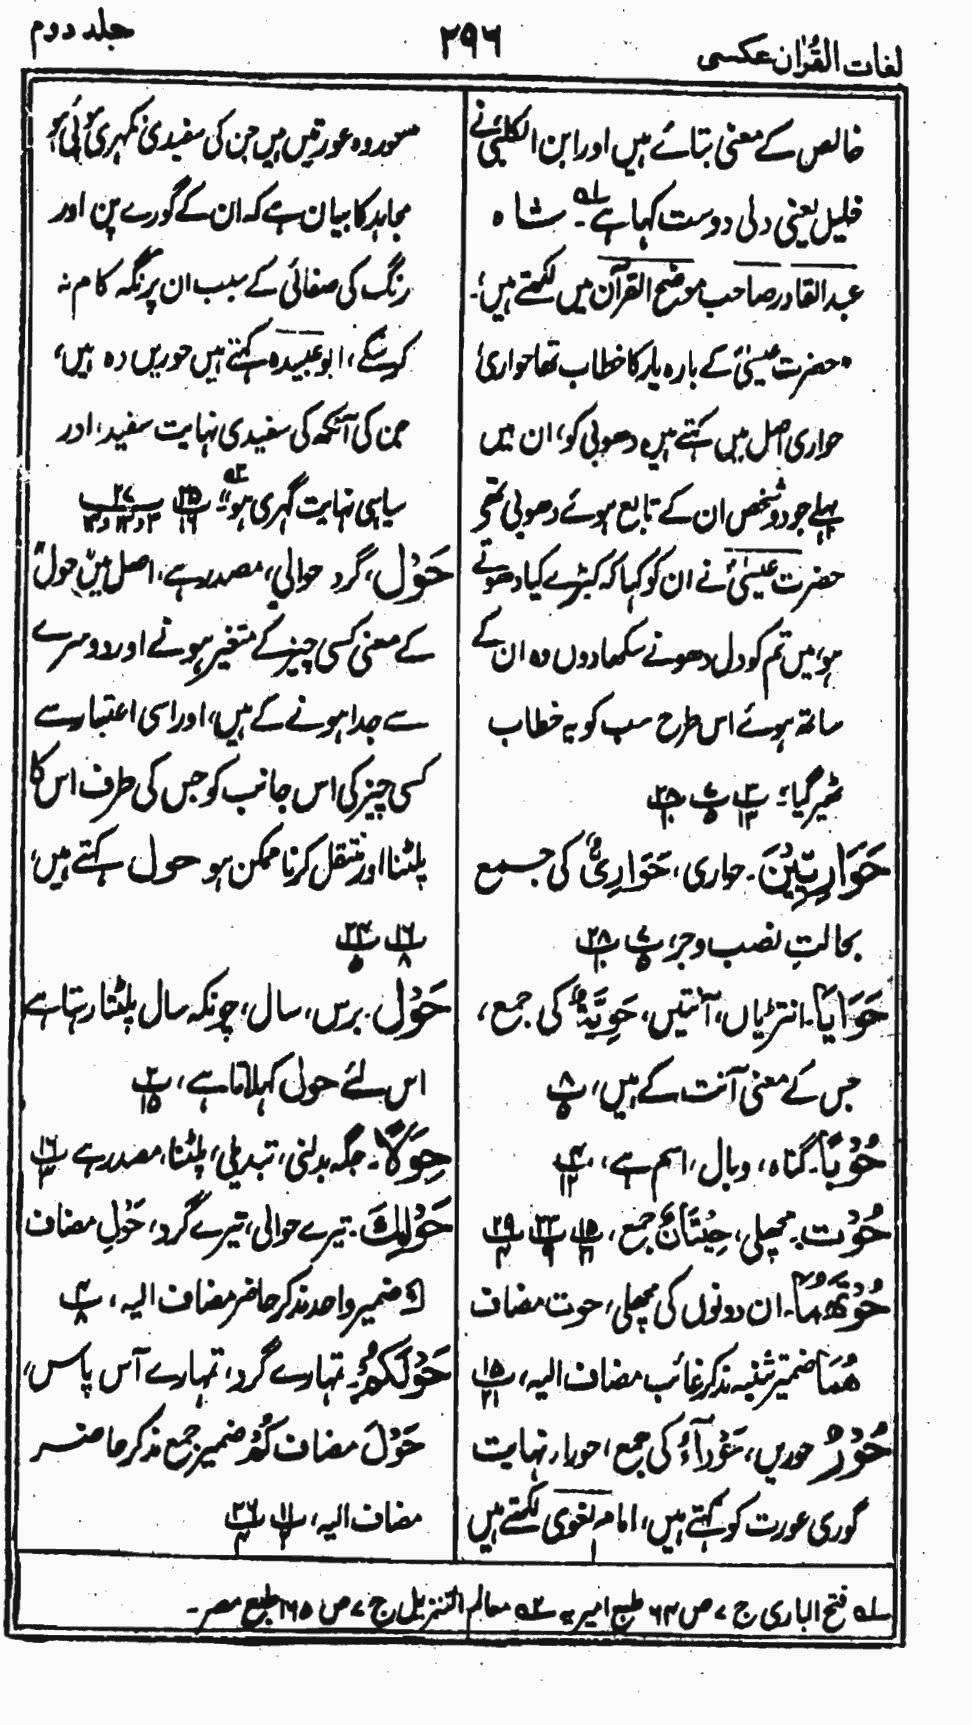 لغات القرآن عکسی
۲۹۶
جلد دوم
خالص کے معنی بتائے ہیں اور ابن الکلبیؒ نے
خلیل یعنی دلی دوست کہا ہے۔ لہ شاہ
عبدالقادر صاحب موضح القرآن میں لکھتے ہیں:۔
حضرت عیسیٰؑ کے بارہ یار کا خطاب تھا حواری
حواری اصل میں کہتے ہیں دھوبی کو، ان میں
پہلے جو دو شخص ان کے تابع ہوئے دھوبی تھے
حضرت عیسیٰؑ نے ان کو کہا کہ کپڑے کیا دھوتے
ہو، میں تم کو دل دھونے سکھا دوں وہ ان کے
ساتھ ہوئے اس طرح سب کو یہ خطاب
ٹھیر گیا؛ پ۳ ۱۳ پ۷ ۵ پ۲۸ ۱۰
حَوَارِيّٖنَ۔ حواری، حَوَارِیٌّ کی جمع
بحالتِ نصب و جر، پ۷ ۵ پ۲۸ ۱۰
حَوَايَا۔ انتڑیاں، آنتیں، حَوِيَّةٌ کی جمع،
جس کے معنی آنت کے ہیں، پ۸ ۵
حُوْبًا۔ گناہ، وبال، اسم ہے، پ۴ ۱۲
حُوْت۔ مچھلی، حِيْتَانٌ جمع، پ۱۵ ۲۱ پ۲۳ ۹ پ۲۹ ۴
حُوْتَهُمَا۔ ان دونوں کی مچھلی، حوت مضاف
هُمَا ضمیر تثنیہ مذکر غائب مضاف الیہ، پ۱۵ ۲۱
حُوْرٌ حوریں، حَوْرَآءُ کی جمع، حوراء نہایت
گوری عورت کو کہتے ہیں، امام بغوی لکھتے ہیں
حور وہ عورتیں ہیں جن کی سفیدی نکھری ہوئی ہو
مجاہد کا بیان ہے کہ ان کے گورے پن اور
رنگ کی صفائی کے سبب ان پر نگہ کام نہ
کرسکے، ابوعبیدہ کہتے ہیں حوریں وہ ہیں،
جن کی آنکھ کی سفیدی نہایت سفید، اور
سیاہی نہایت گہری ہو؛۔ ۲ہ پ۲۵ ۱۶ پ۲۷ ۳ و ۱۳ و ۱۴
حَوْلَ، گرد حوالی، مصدر ہے، اصل میں حول
کے معنی کسی چیز کے متغیر ہونے اور دوسرے
سے جدا ہونے کے ہیں، اور اسی اعتبار سے
کسی چیز کی اس جانب کو جس کی طرف اس کا
پلٹنا اور منتقل کرنا ممکن ہو حول کہتے ہیں،
پ۱۶ ۸ پ۲۴ ۵
حَوْل۔ برس، سال، چونکہ سال پلٹتا رہتا ہے
اس لئے حول کہلاتا ہے، پ۲ ۱۵
حِوَلًا۔ جگہ بدلنی، تبدیلی، پلٹنا، مصدر ہے پ۱۶ ۳
حَوْلِكَ۔ تیرے حوالی، تیرے گرد، حَوْلِ مضاف
كَ ضمیر واحد مذکر حاضر مضاف الیہ، پ۴ ۸
حَوْلَكُمْ۔ تمہارے گرد، تمہارے آس پاس،
حَوْلَ مضاف كُمْ ضمیر جمع مذکر حاضر
مضاف الیہ، پ۱۱ ۲ پ۲۶ ۴
لہ فتح الباری ج ۷ ص ۶۴ طبع امیریہ ۲ہ معالم التنزیل ج ۷ ص ۱۶۵ طبع مصر۔